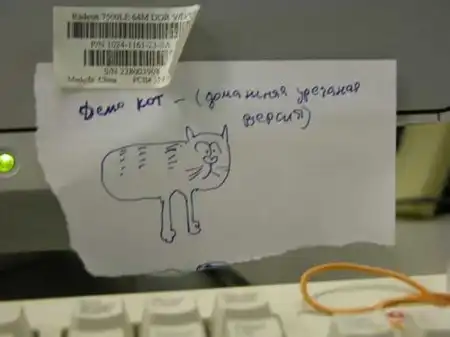 Radeon 7500LE 64M DDR
P/N 1024-1161-23-SA
S/N
Made In China
Демо кот - (домашняя урезаная
версия)